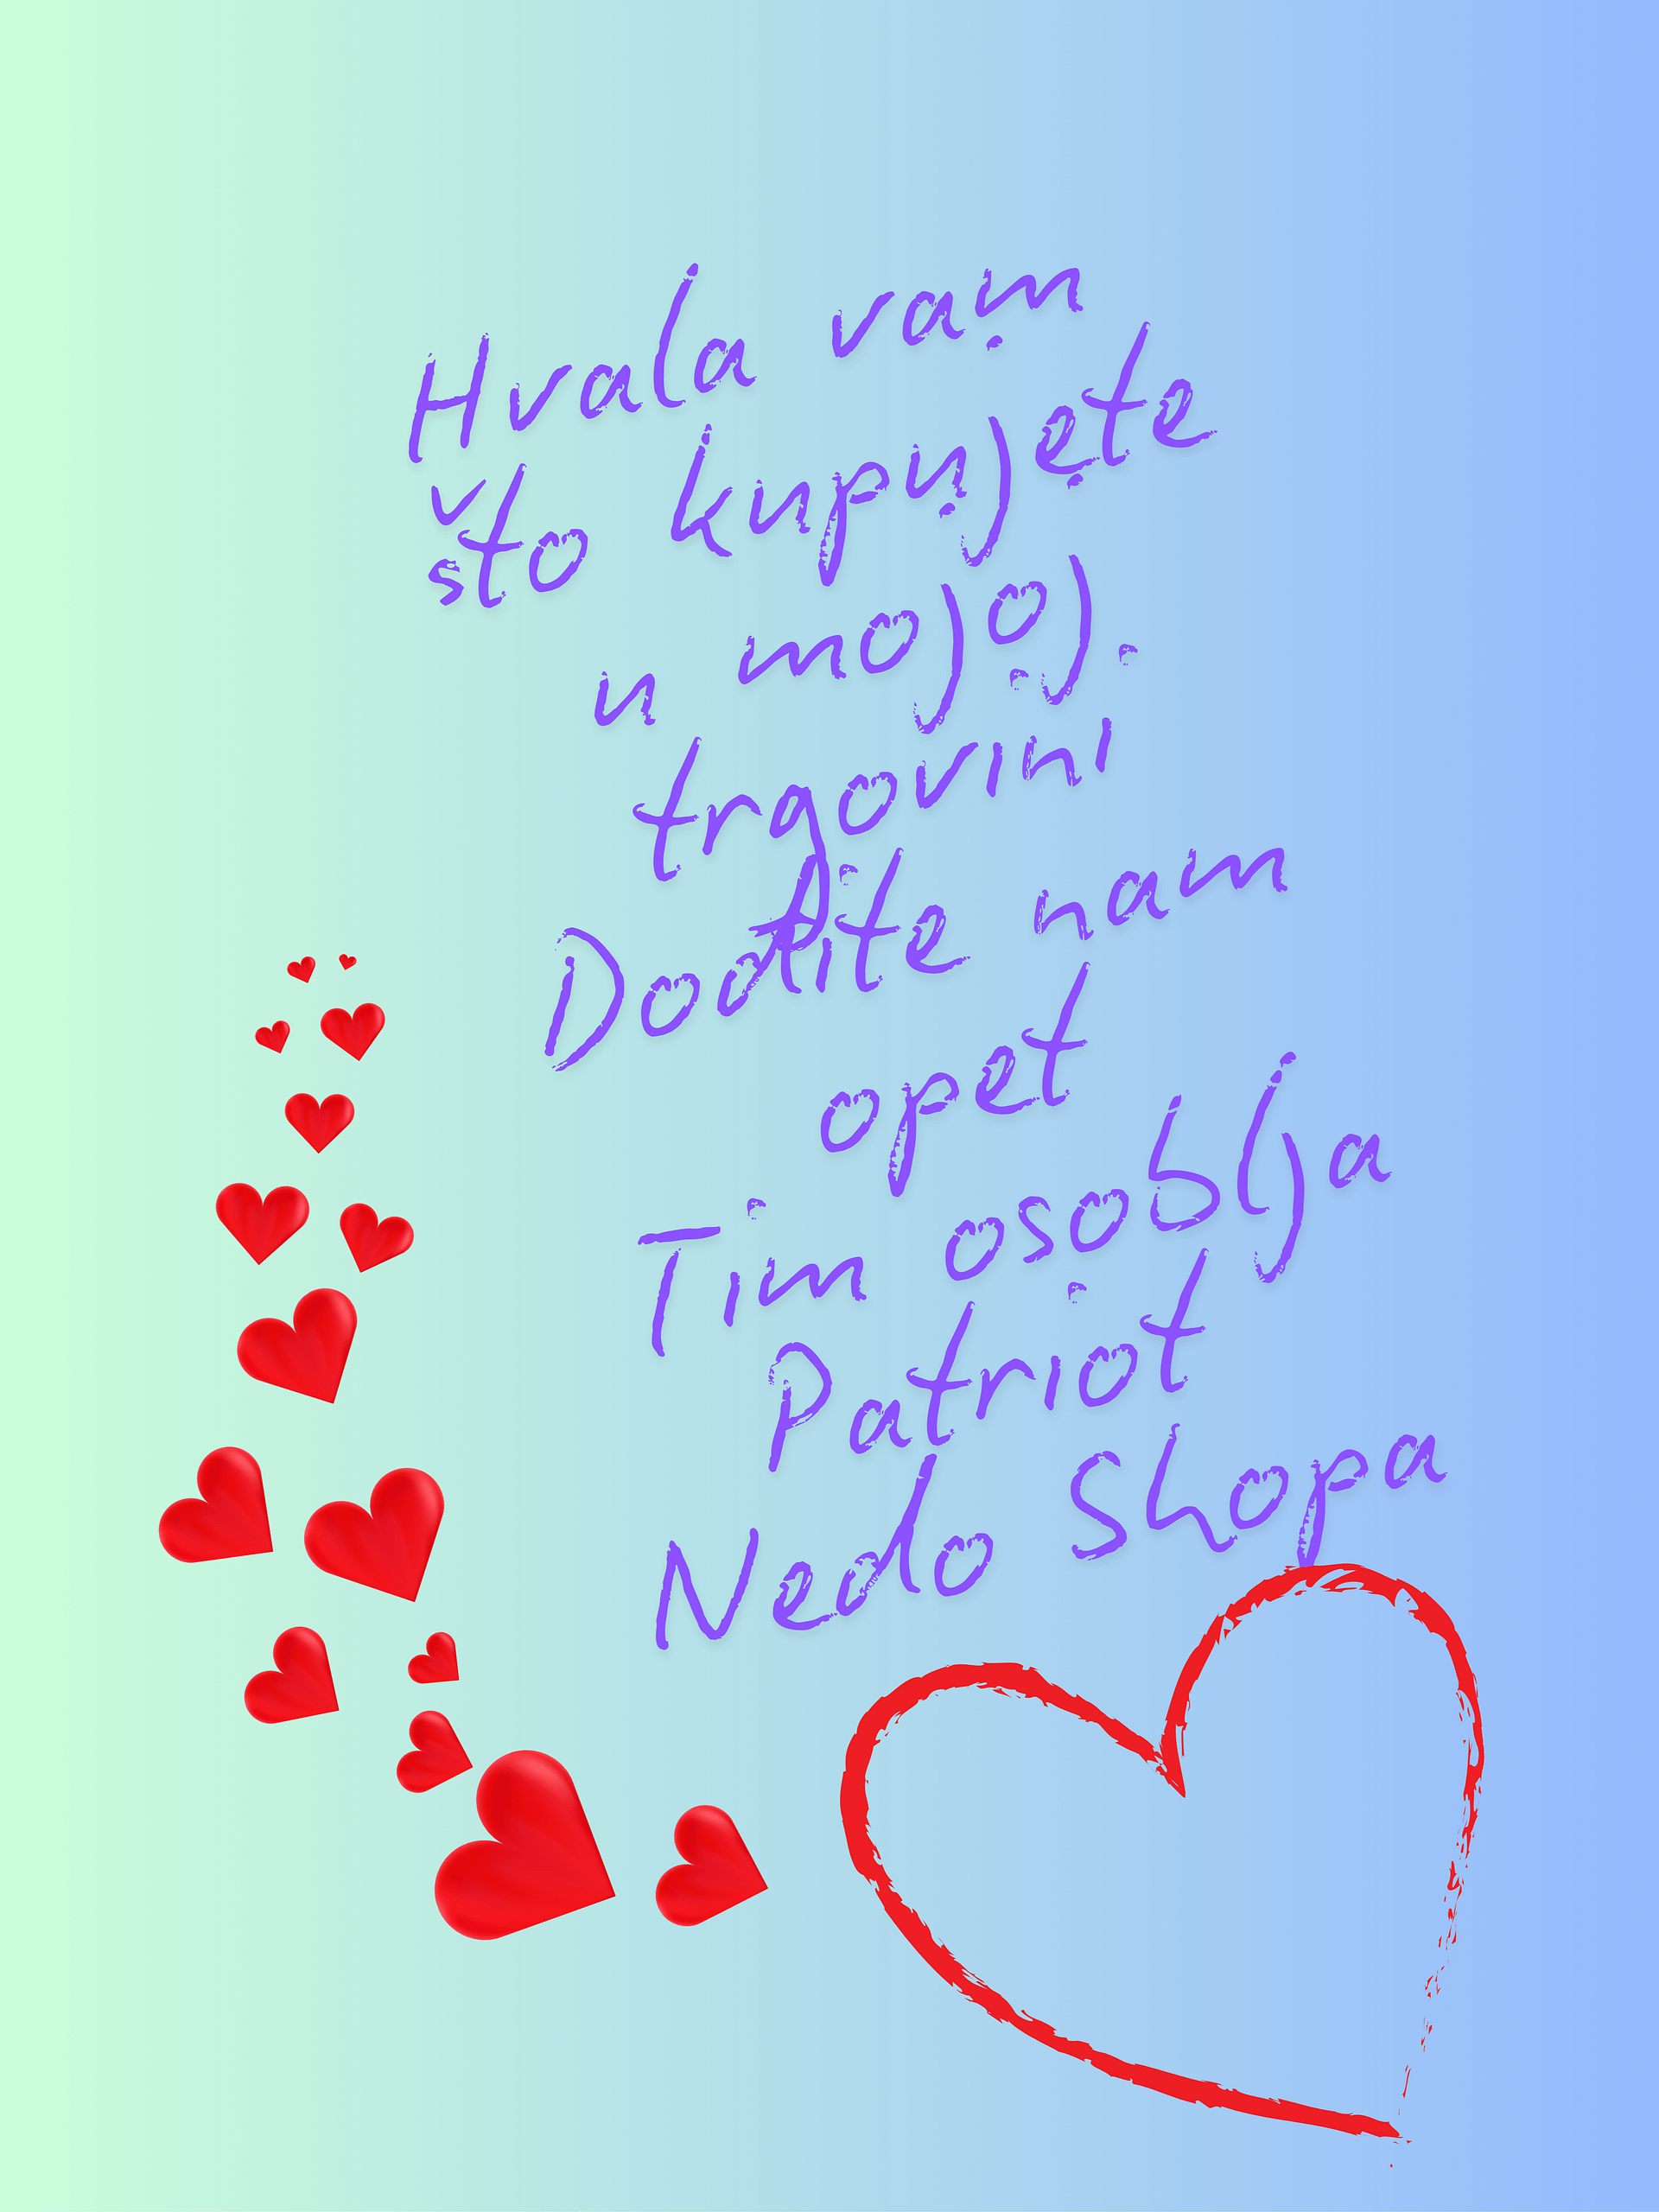 Hvala vam
što kupujete
u mojoj
trgovini
Dođite nam
opet
Tim osoblja
Patriot
Nedo Shopa